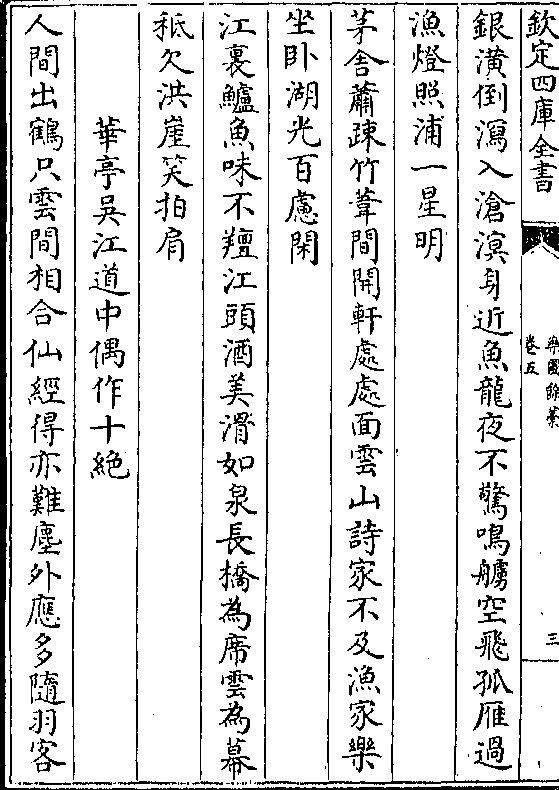 欽定四庫全書
樂圃餘藁
卷五
三
銀潢倒瀉入滄溟身近魚龍夜不驚鳴艣空飛孤雁過
漁燈照浦一星明
茅舍蕭疎竹葦間開軒處處面雲山詩家不及漁家樂
坐卧湖光百慮閑
江裏鱸魚味不羶江頭酒美滑如泉長橋為席雲為幕
秪欠洪崖笑拍肩
華亭吳江道中偶作十絶
人間出鶴只雲間相合仙經得亦難塵外應多隨羽客